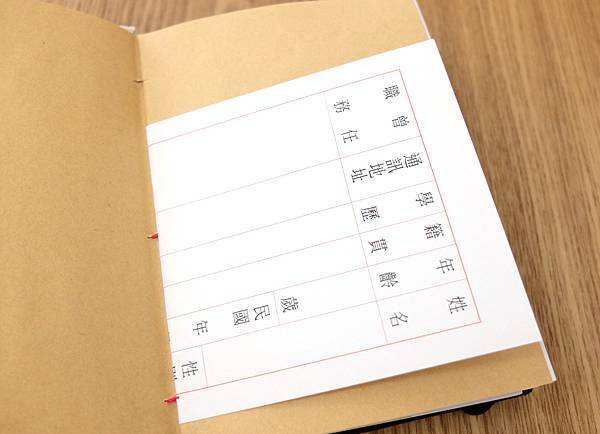 姓名
性別
年齡
歲
民國
年
籍貫
學歷
通訊地址
曾任職務